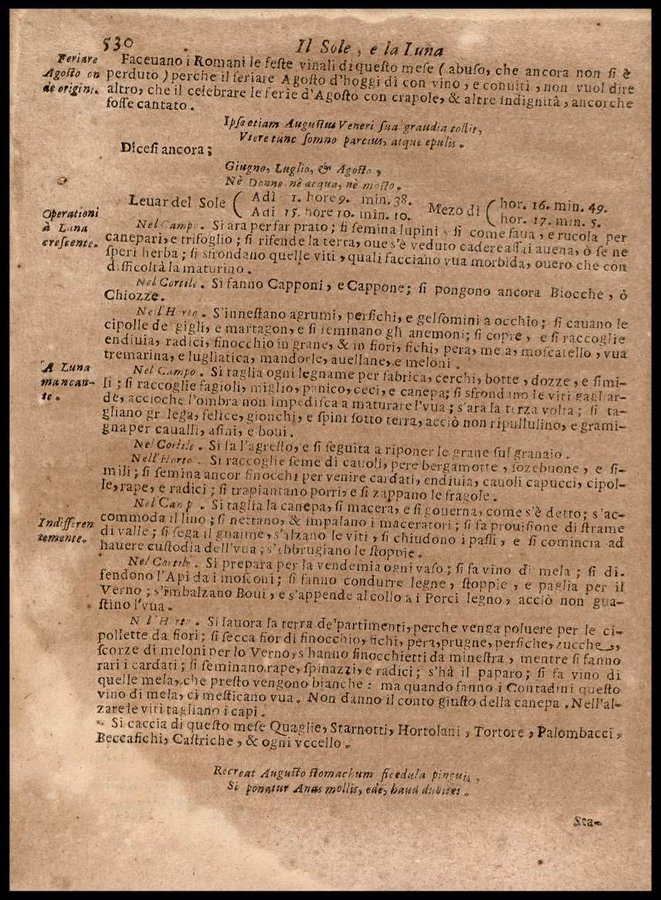 530
Il Sole, e la Luna
Feriare
Agosto on
de origini.
Faceuano i Romani le feste vinali di questo mese (abuso, che ancora non si è
perduto) perche il feriare Agosto d'hoggi dì con vino, e conuiti, non vuol dire
altro, che il celebrare le ferie d'Agosto con crapole, & altre indignità, ancorche
fosse cantato.
Ipsa etiam Augustus Veneri sua graudia tollit,
Vtere tunc somno parcius, atque epulis.
Dicesi ancora;
Giugno, Luglio, & Agosto,
Nè Donne nè acqua, nè mosto.
Leuar del Sole ( Adì 1. hore 9. min. 38. Mezo dì ( hor. 16. min. 49.
Adi 15. hore 10. min. 10. hor. 17. min. 5.
Operationi
à Luna
crescente.
Nel Campo. Si ara per far prato; si semina lupini, sì come faua, e rucola per
canepari, e trifoglio; si rifende la terra, oue s'è veduto cader assai auena, ò se ne
speri herba; si sfrondano quelle viti, quali facciano vua morbida, ouero che con
difficoltà la maturino.
Nel Cortile. Si fanno Capponi, e Cappone; si pongono ancora Biocche, ò
Chiozze.
Nell'Horto. S'innestano agrumi, persichi, e gelsomini a occhio; si cauano le
cipolle de' gigli, e martagon, e si seminano gli anemoni; si copre, e si raccoglie
endiuia, radici, finocchio in grane, & in fiori, fichi, pera, mela, moscatello, vua
tremarina, e lugliatica, mandorle, auellane, e meloni.
A Luna
mancan-
te.
Nel Campo. Si taglia ogni legname per fabrica, cerchi, botte, dozze, e simi-
li; si raccoglie fagioli, miglio, panico, ceci, e canepa; si sfrondano le viti gagliar-
de, accioche l'ombra non impedisca a maturare l'vua; s'ara la terza volta; si ta-
gliano gralega, felice, gionchi, e spini sotto terra, acciò non ripullulino, e grami-
gna per caualli, asini, e boui.
Nel Cortile. Si fa l'agresto, e si seguita a riponer le grane sul granaio.
Nell'Horto. Si raccoglie seme di cauoli, pere bergamotte, fozebuone, e si-
mili; si semina ancor finocchi per venire cardati, endiuia, cauoli capucci, cipol-
le, rape, e radici; si trapiantano porri, e si zappano le fragole.
Indifferen
temente.
Nel Camp. Si taglia la canepa, si macera, e si gouerna, come s'è detto; s'ac-
commoda il lino; si nettano, & impalano i maceratori; si fa prouisione di strame
di valle; si sega il guaime, s'alzano le viti, si chiudono i passi, e si comincia ad
hauere custodia dell'vua; s'abbrugiano le stoppie.
Nel Cortile. Si prepara per la vendemia ogni vaso; si fa vino di mela; si di-
fendono l'Api da i mosconi; si fanno condurre legne, stoppie, e paglia per il
Verno; s'imbalzano Boui, e s'appende al collo a i Porci legno, acciò non gua-
stino l'vua.
Nell'Horto. Si lauora la terra de' partimenti, perche venga poluere per le ci-
pollette da fiori; si secca fior di finocchio, fichi, pera, prugne, persiche, zucche,
scorze di meloni per lo Verno, s'hanno finocchietti da minestra, mentre si fanno
rari i cardati; si seminano rape, spinazzi, e radici; s'hà il paparo; si fa vino di
quelle mela, che presto vengono bianche: ma quando fanno i Contadini questo
vino di mela, ci mesticano vua. Non danno il conto giusto della canepa. Nell'al-
zare le viti tagliano i capi.
Si caccia di questo mese Quaglie, Starnotti, Hortolani, Tortore, Palombacci,
Beccafichi, Castriche, & ogni vccello.
Recreat Augusto stomachum ficedula pinguis,
Si ponatur Anas mollis, ede, haud dubites.
Sta-